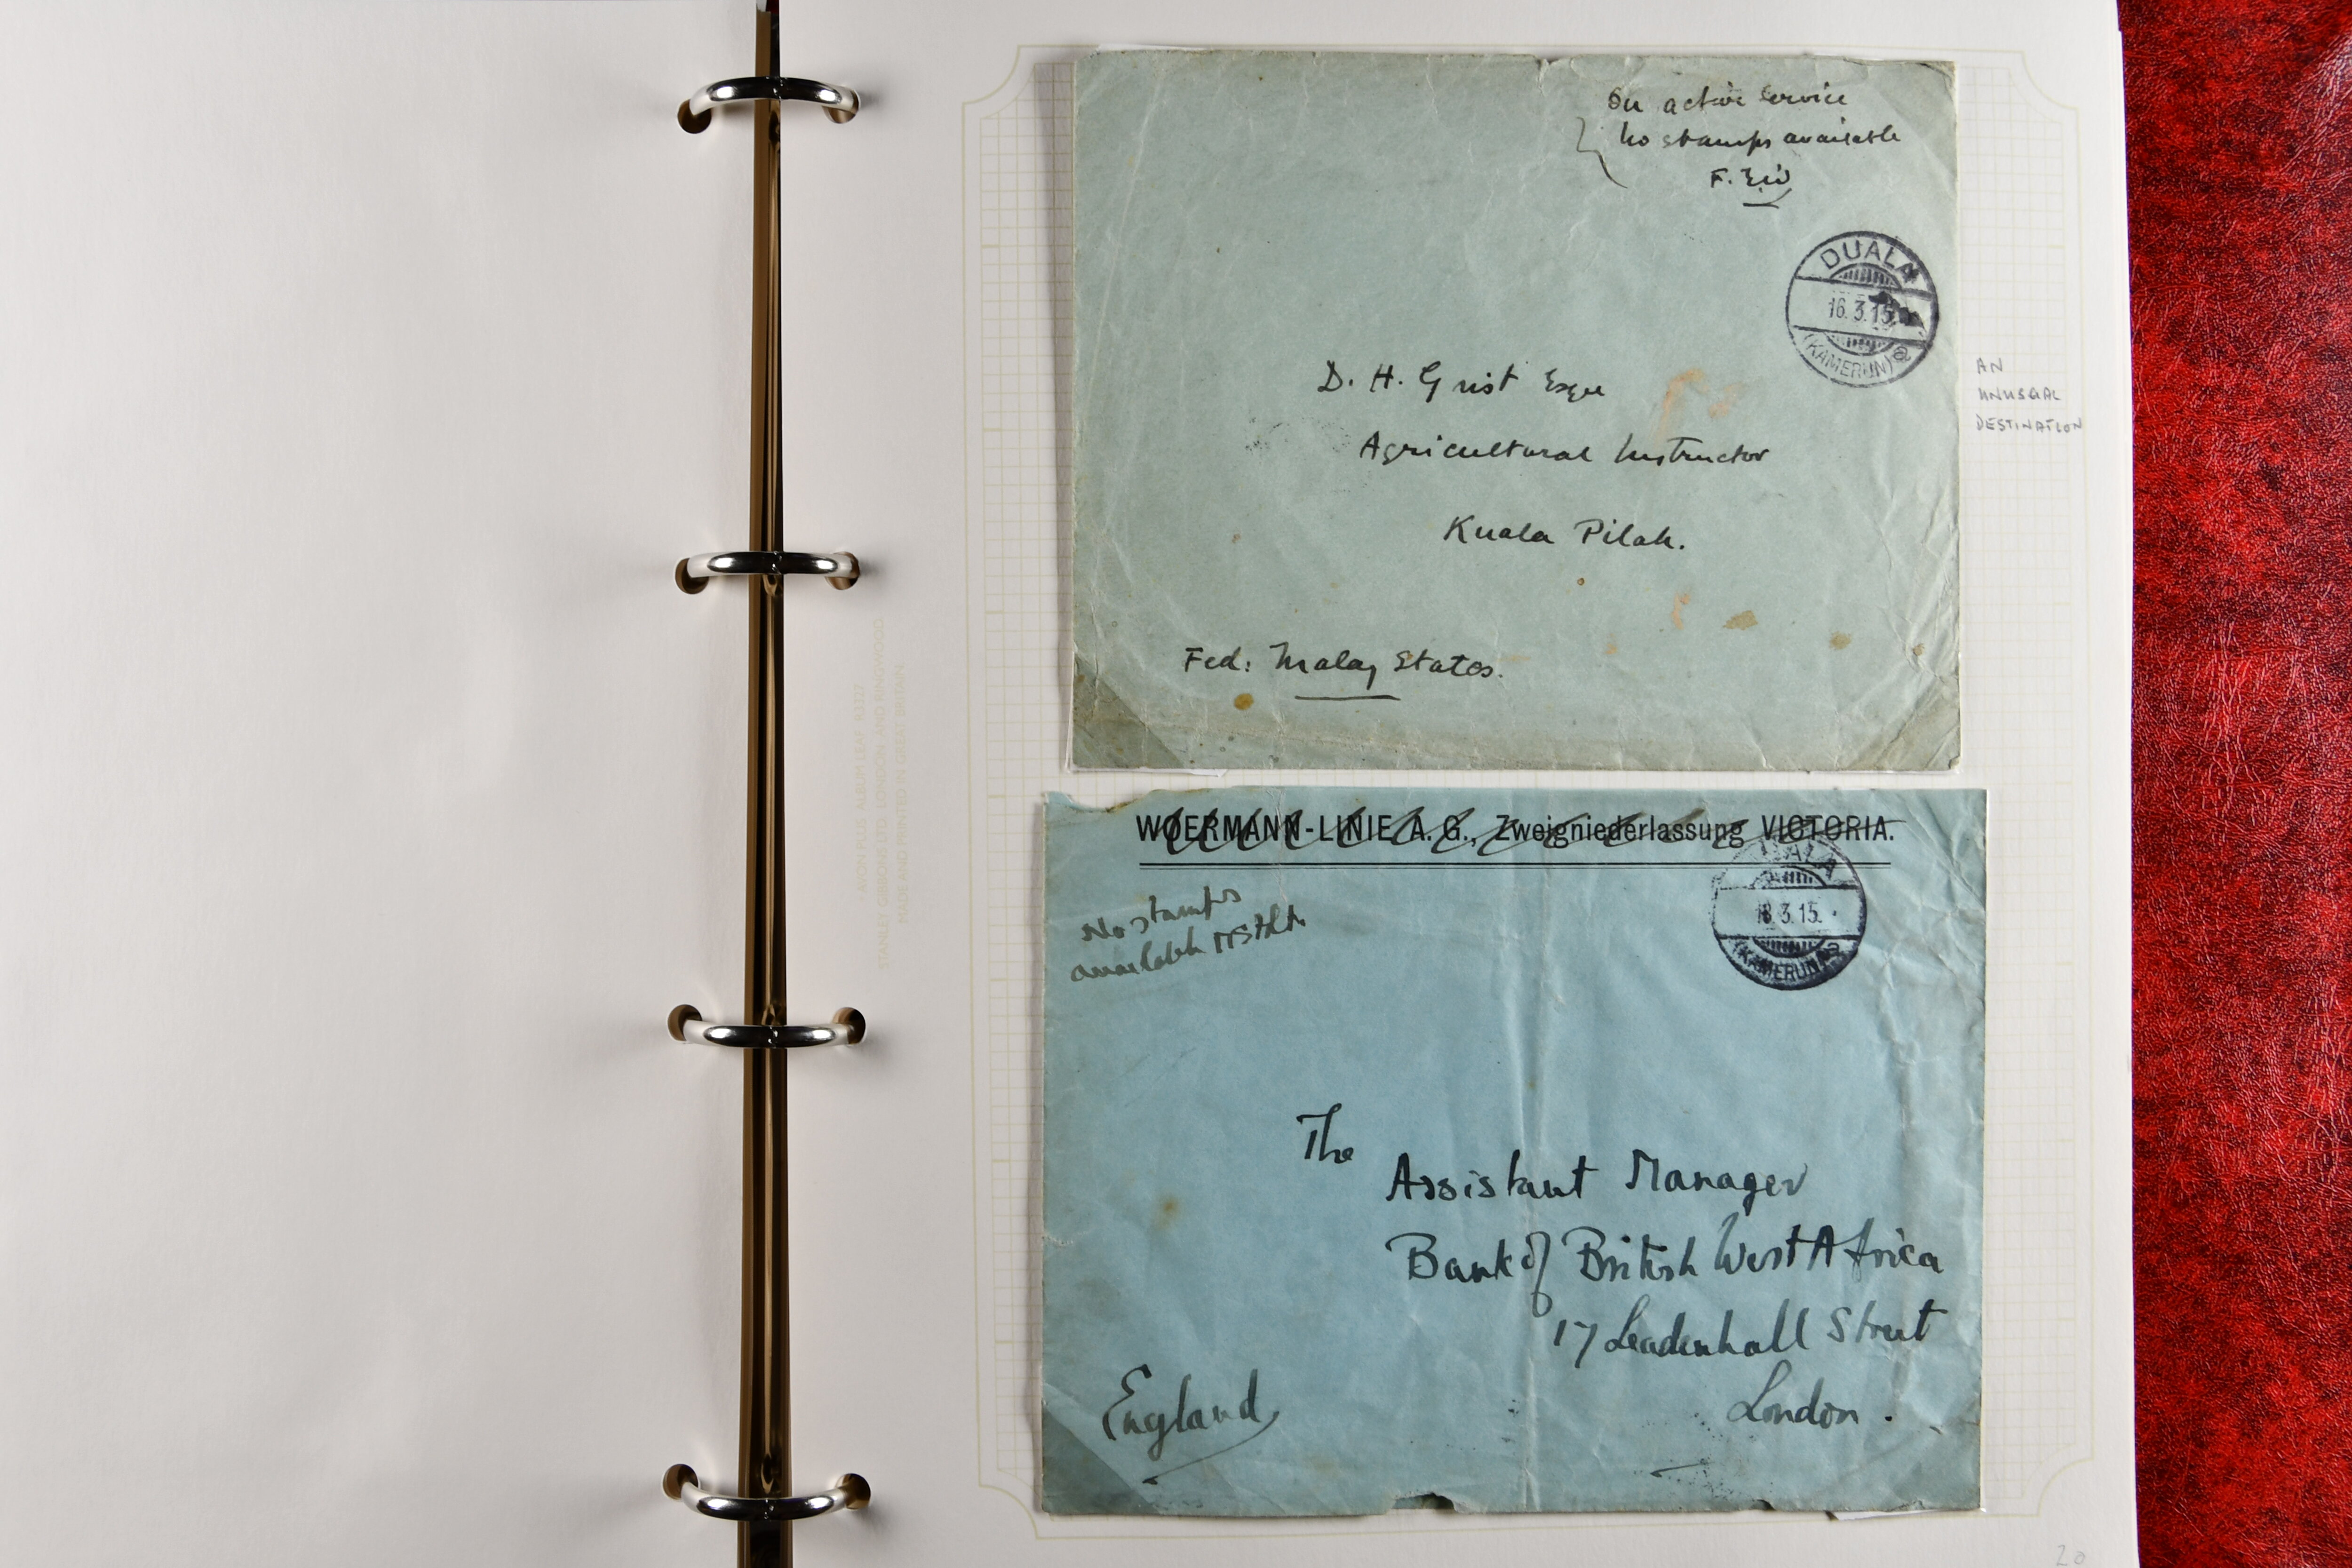 On active service
No stamps available
F.
DUALA
16.3.15
(KAMERUN) a
D. H. Grist Esqre
Agricultural Instructor
Kuala Pilah.
Fed: Malay States.
AN
UNUSUAL
DESTINATION
AVON PLUS ALBUM LEAF R3327
STANLEY GIBBONS LTD. LONDON AND RINGWOOD.
MADE AND PRINTED IN GREAT BRITAIN
WOERMANN-LINIE A. G., Zweigniederlassung VICTORIA.
DUALA
18.3.15.
(KAMERUN) a
No stamps
available
The
Assistant Manager
Bank of British West Africa
17 Leadenhall Street
London.
England
20